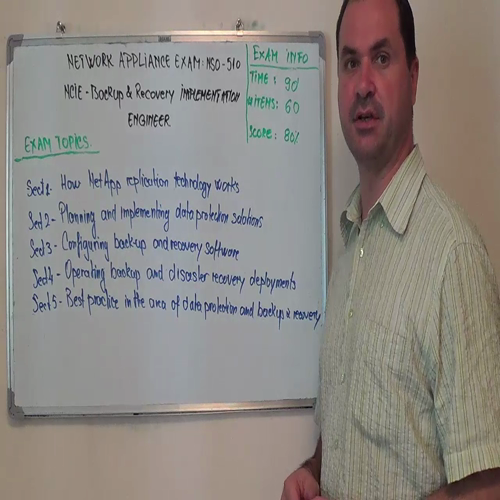 NETWORK APPLIANCE EXAM: NSO-510
NCIE - Backup & Recovery IMPLEMENTATION
ENGINEER
EXAM INFO
TIME: 90
# ITEMS: 60
SCORE: 80%
EXAM TOPICS:
Sect 1- How NetApp replication technology works
Sect 2- Planning and implementing data protection solutions
Sect 3- Configuring back-up and recovery software
Sect 4- Operating backup and disaster recovery deployments
Sect 5- Best practice in the area of data protection and backup & recovery